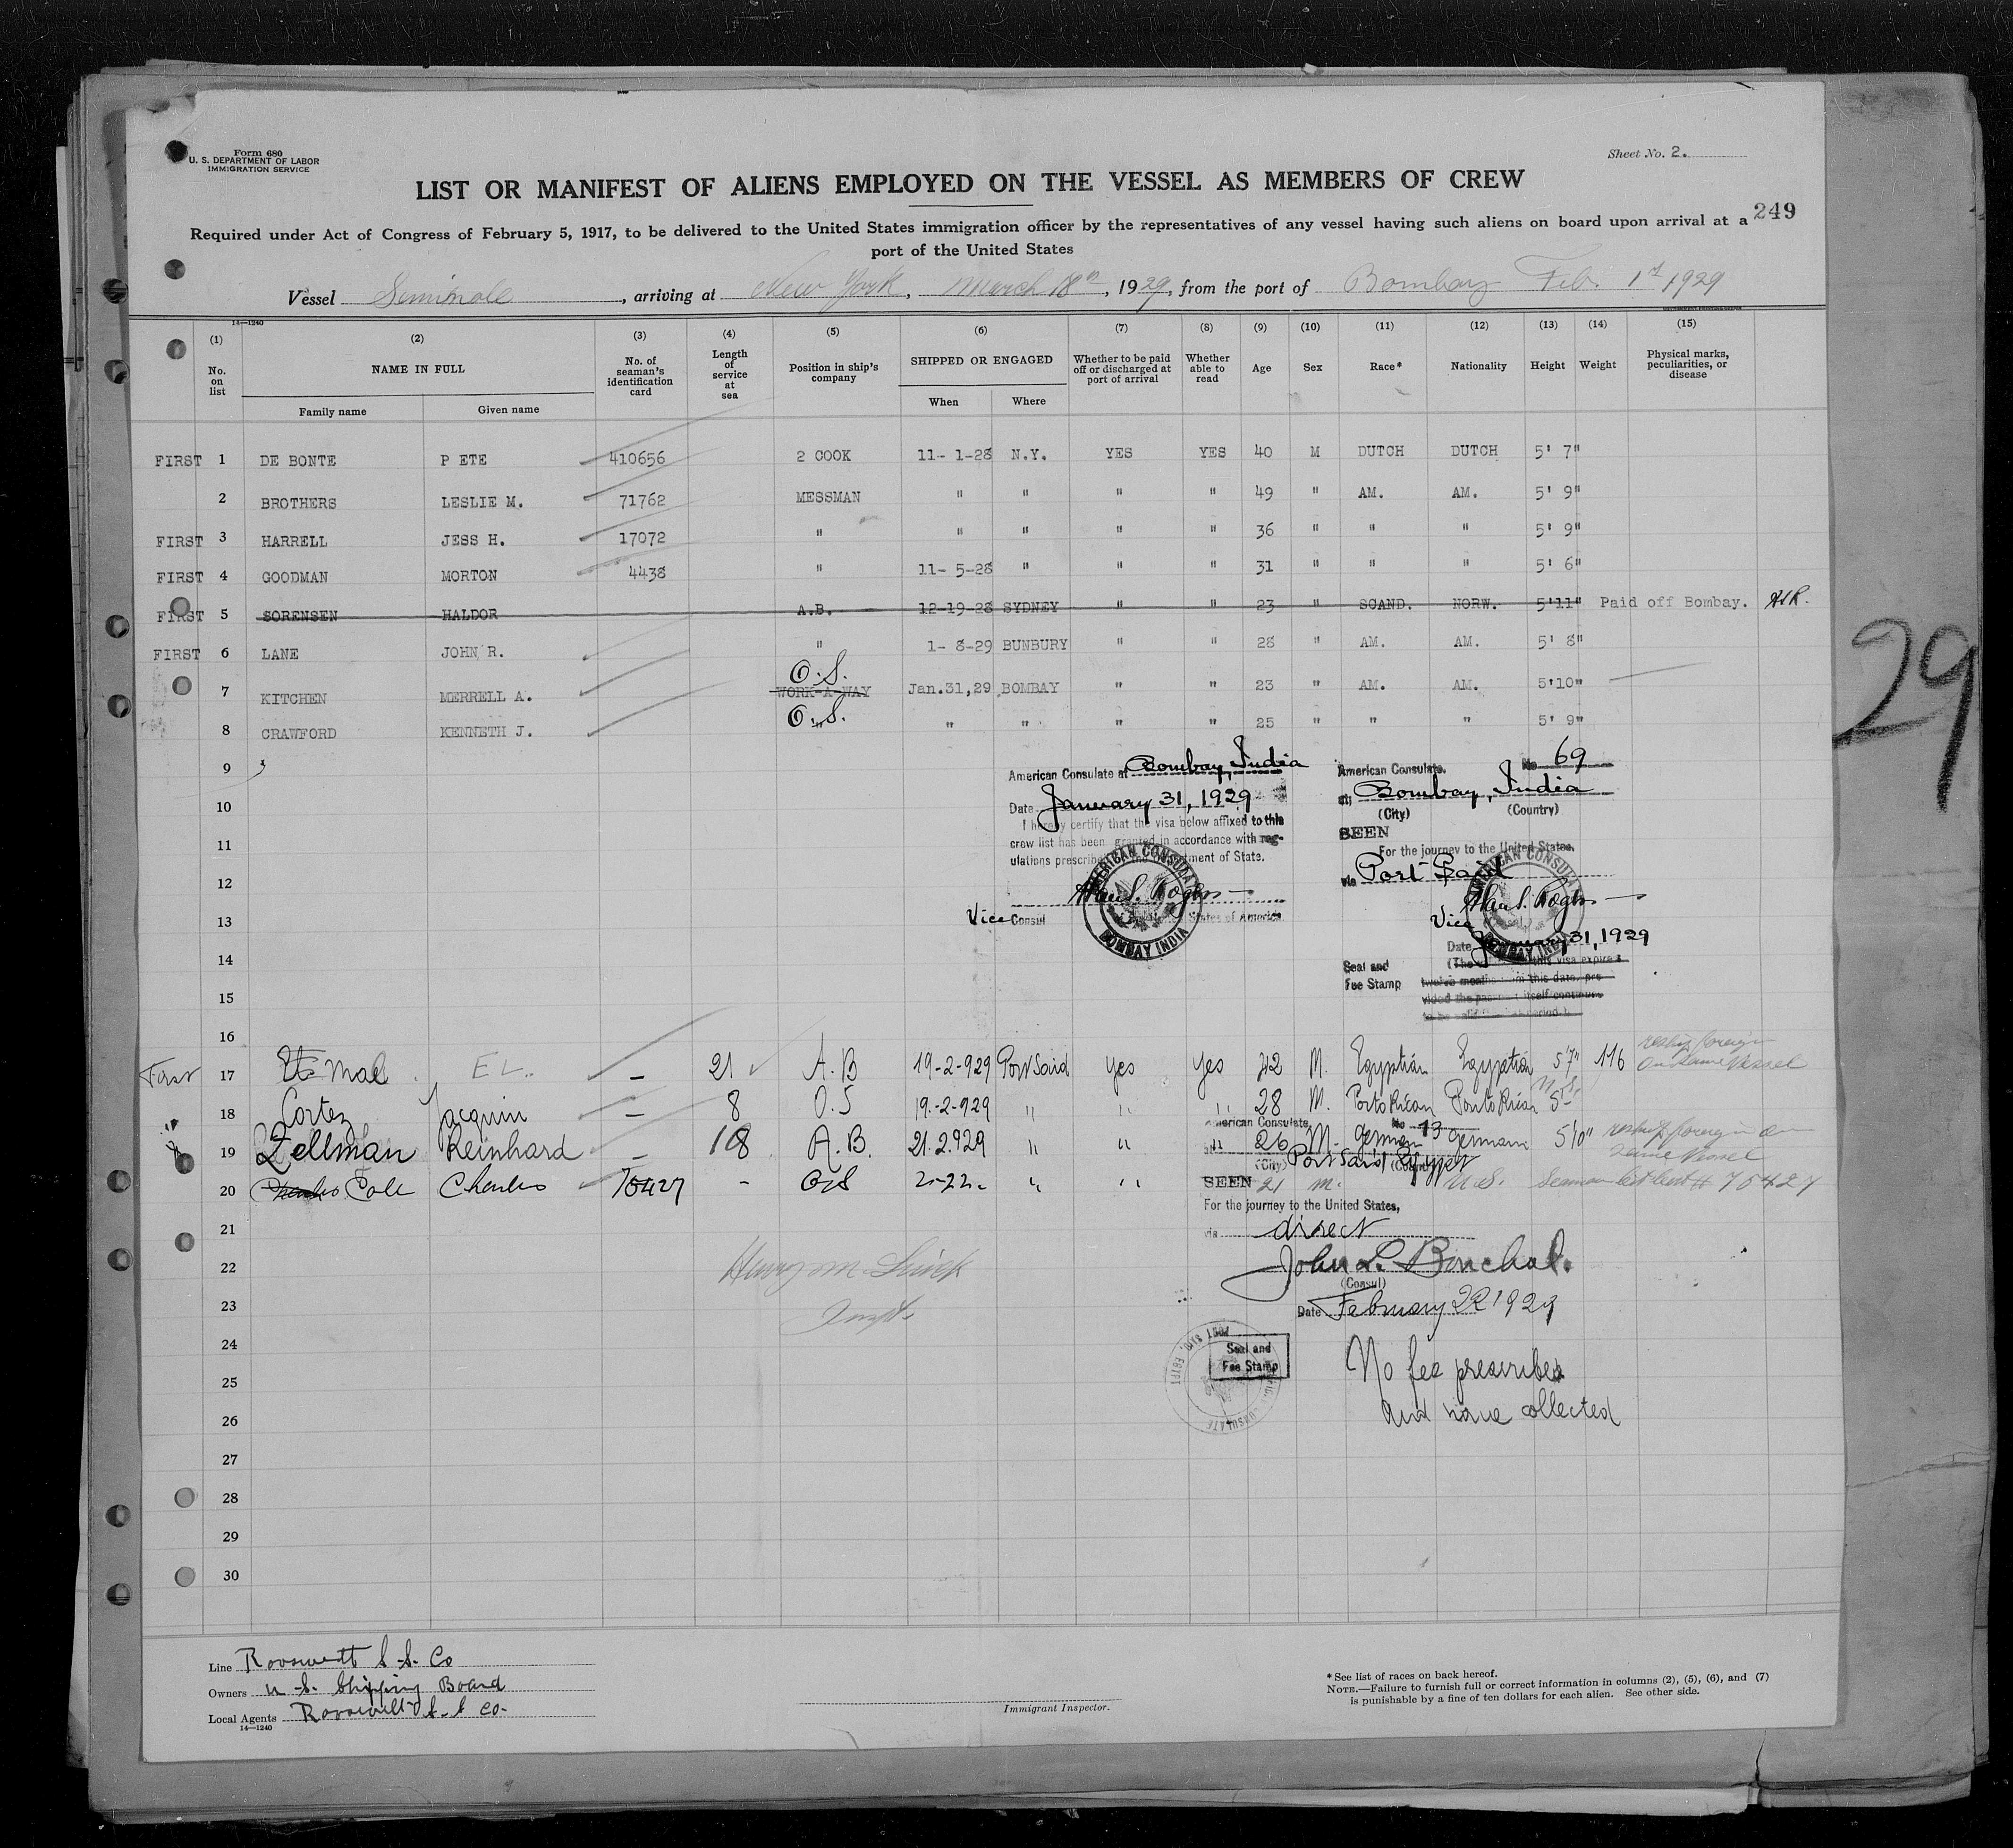 Form 680
U. S. DEPARTMENT OF LABOR
IMMIGRATION SERVICE
Sheet No. 2.
LIST OR MANIFEST OF ALIENS EMPLOYED ON THE VESSEL AS MEMBERS OF CREW
249
Required under Act of Congress of February 5, 1917, to be delivered to the United States immigration officer by the representatives of any vessel having such aliens on board upon arrival at a
port of the United States
Vessel Seminole, arriving at New York, March 18th, 1929, from the port of Bombay Feb. 1st 1929
14—1240
(1) (2) (3) (4) (5) (6) (7) (8) (9) (10) (11) (12) (13) (14) (15)
No. on list
NAME IN FULL
Family name Given name
No. of seaman's identification card
Length of service at sea
Position in ship's company
SHIPPED OR ENGAGED
When Where
Whether to be paid off or discharged at port of arrival
Whether able to read
Age
Sex
Race*
Nationality
Height
Weight
Physical marks, peculiarities, or disease
FIRST 1 DE BONTE P ETE 410656 2 COOK 11- 1-28 N.Y. YES YES 40 M DUTCH DUTCH 5' 7"
2 BROTHERS LESLIE M. 71762 MESSMAN " " " " 49 " AM. AM. 5' 9"
FIRST 3 HARRELL JESS H. 17072 " " " " " 36 " " " 5' 9"
FIRST 4 GOODMAN MORTON 4438 " 11- 5-28 " " " 31 " " " 5' 6"
FIRST 5 SORENSEN HALDOR A.B. 12-19-28 SYDNEY " " 23 " SCAND. NORW. 5'11" Paid off Bombay.
FIRST 6 LANE JOHN R. " 1- 8-29 BUNBURY " " 28 " AM. AM. 5' 8"
O.S.
7 KITCHEN MERRELL A. WORK-A-WAY Jan.31,29 BOMBAY " " 23 " AM. AM. 5'10"
8 CRAWFORD KENNETH J. O.S. " " " " 25 " " " 5' 9"
29
9
10
11
12
13
14
15
16
American Consulate at Bombay, India
Date January 31, 1929
I hereby certify that the visa below affixed to this
crew list has been granted in accordance with reg-
ulations prescribed by the Department of State.
Vice Consul of the United States of America
AMERICAN CONSULATE
BOMBAY INDIA
American Consulate, No 69
at Bombay, India
(City) (Country)
SEEN
For the journey to the United States,
via Port Said
Vice
(Consul)
Date January 31, 1929
Seal and
Fee Stamp
(The validity of this visa expires
twelve months from this date, pro-
vided the passport itself continues
to be valid for that period.)
First 17 El. A. B 21 19-2-929 Port Said Yes Yes 42 M. Egyptian Egyptian 5'7" 116 reship foreign
on same vessel
18 Cortez Jacquin — 8 O.S 19-2-929 " " " 28 M. Porto Rican Porto Rican
19 Zellman Reinhard — 18 A.B. 21.2.929 " " " 26 M. German German 5'10" reship foreign on
same vessel
20 Cole Charles 75427 - O.S 2-22- " " 21 m. U.S. Seaman 75427
American Consulate, No 13
at Port Said Egypt
(City) (Country)
SEEN
For the journey to the United States,
via direct
(Consul)
Date February 22 1929
Seal and
Fee Stamp
PORT SAID, EGYPT
AMERICAN CONSULATE
No fee prescribed
and none collected
21
22
23
24
25
26
27
28
29
30
Line Roosevelt S.S. Co
Owners U.S. Shipping Board
Local Agents Roosevelt S.S Co.
14—1240
Immigrant Inspector.
* See list of races on back hereof.
NOTE.—Failure to furnish full or correct information in columns (2), (5), (6), and (7)
is punishable by a fine of ten dollars for each alien. See other side.